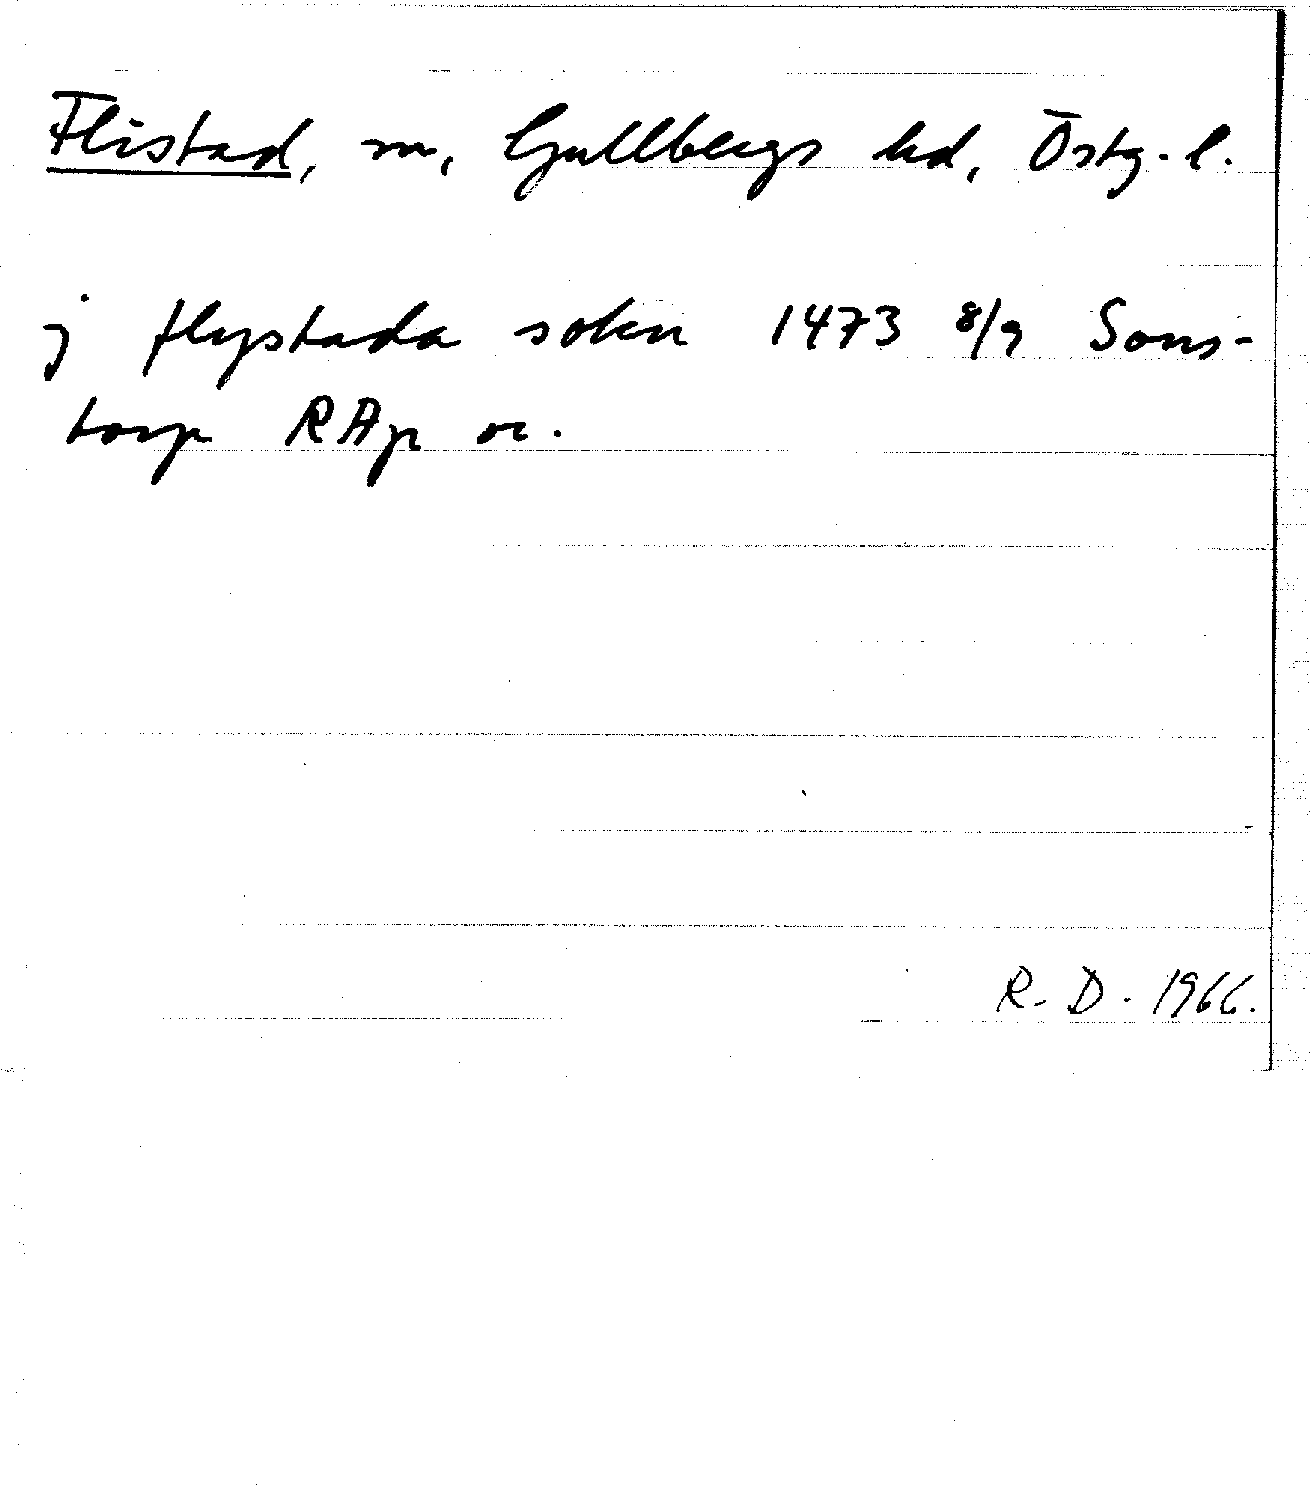 Flistad, sn, Gullbergs hd, Östg. l.
j flystada sokn 1473 8/9 Soms-
torp RAp or.
R. D. 1966.